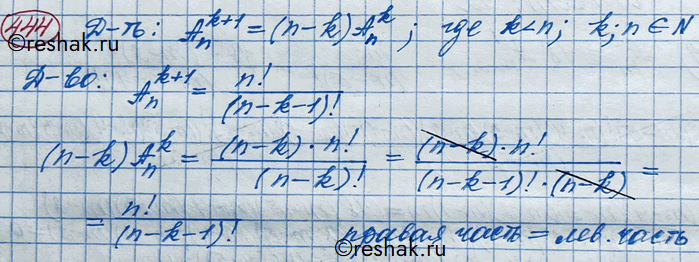 444 Д-ть: A_n^{k+1} = (n-k) A_n^k ; где k<n; k; n ∈ N
reshak.ru
Д-во: A_n^{k+1} = n! / (n-k-1)!
(n-k) A_n^k = (n-k)·n! / (n-k)! = (n-k)·n! / (n-k-1)!·(n-k) =
= n! / (n-k-1)! правая часть = лев. часть
reshak.ru